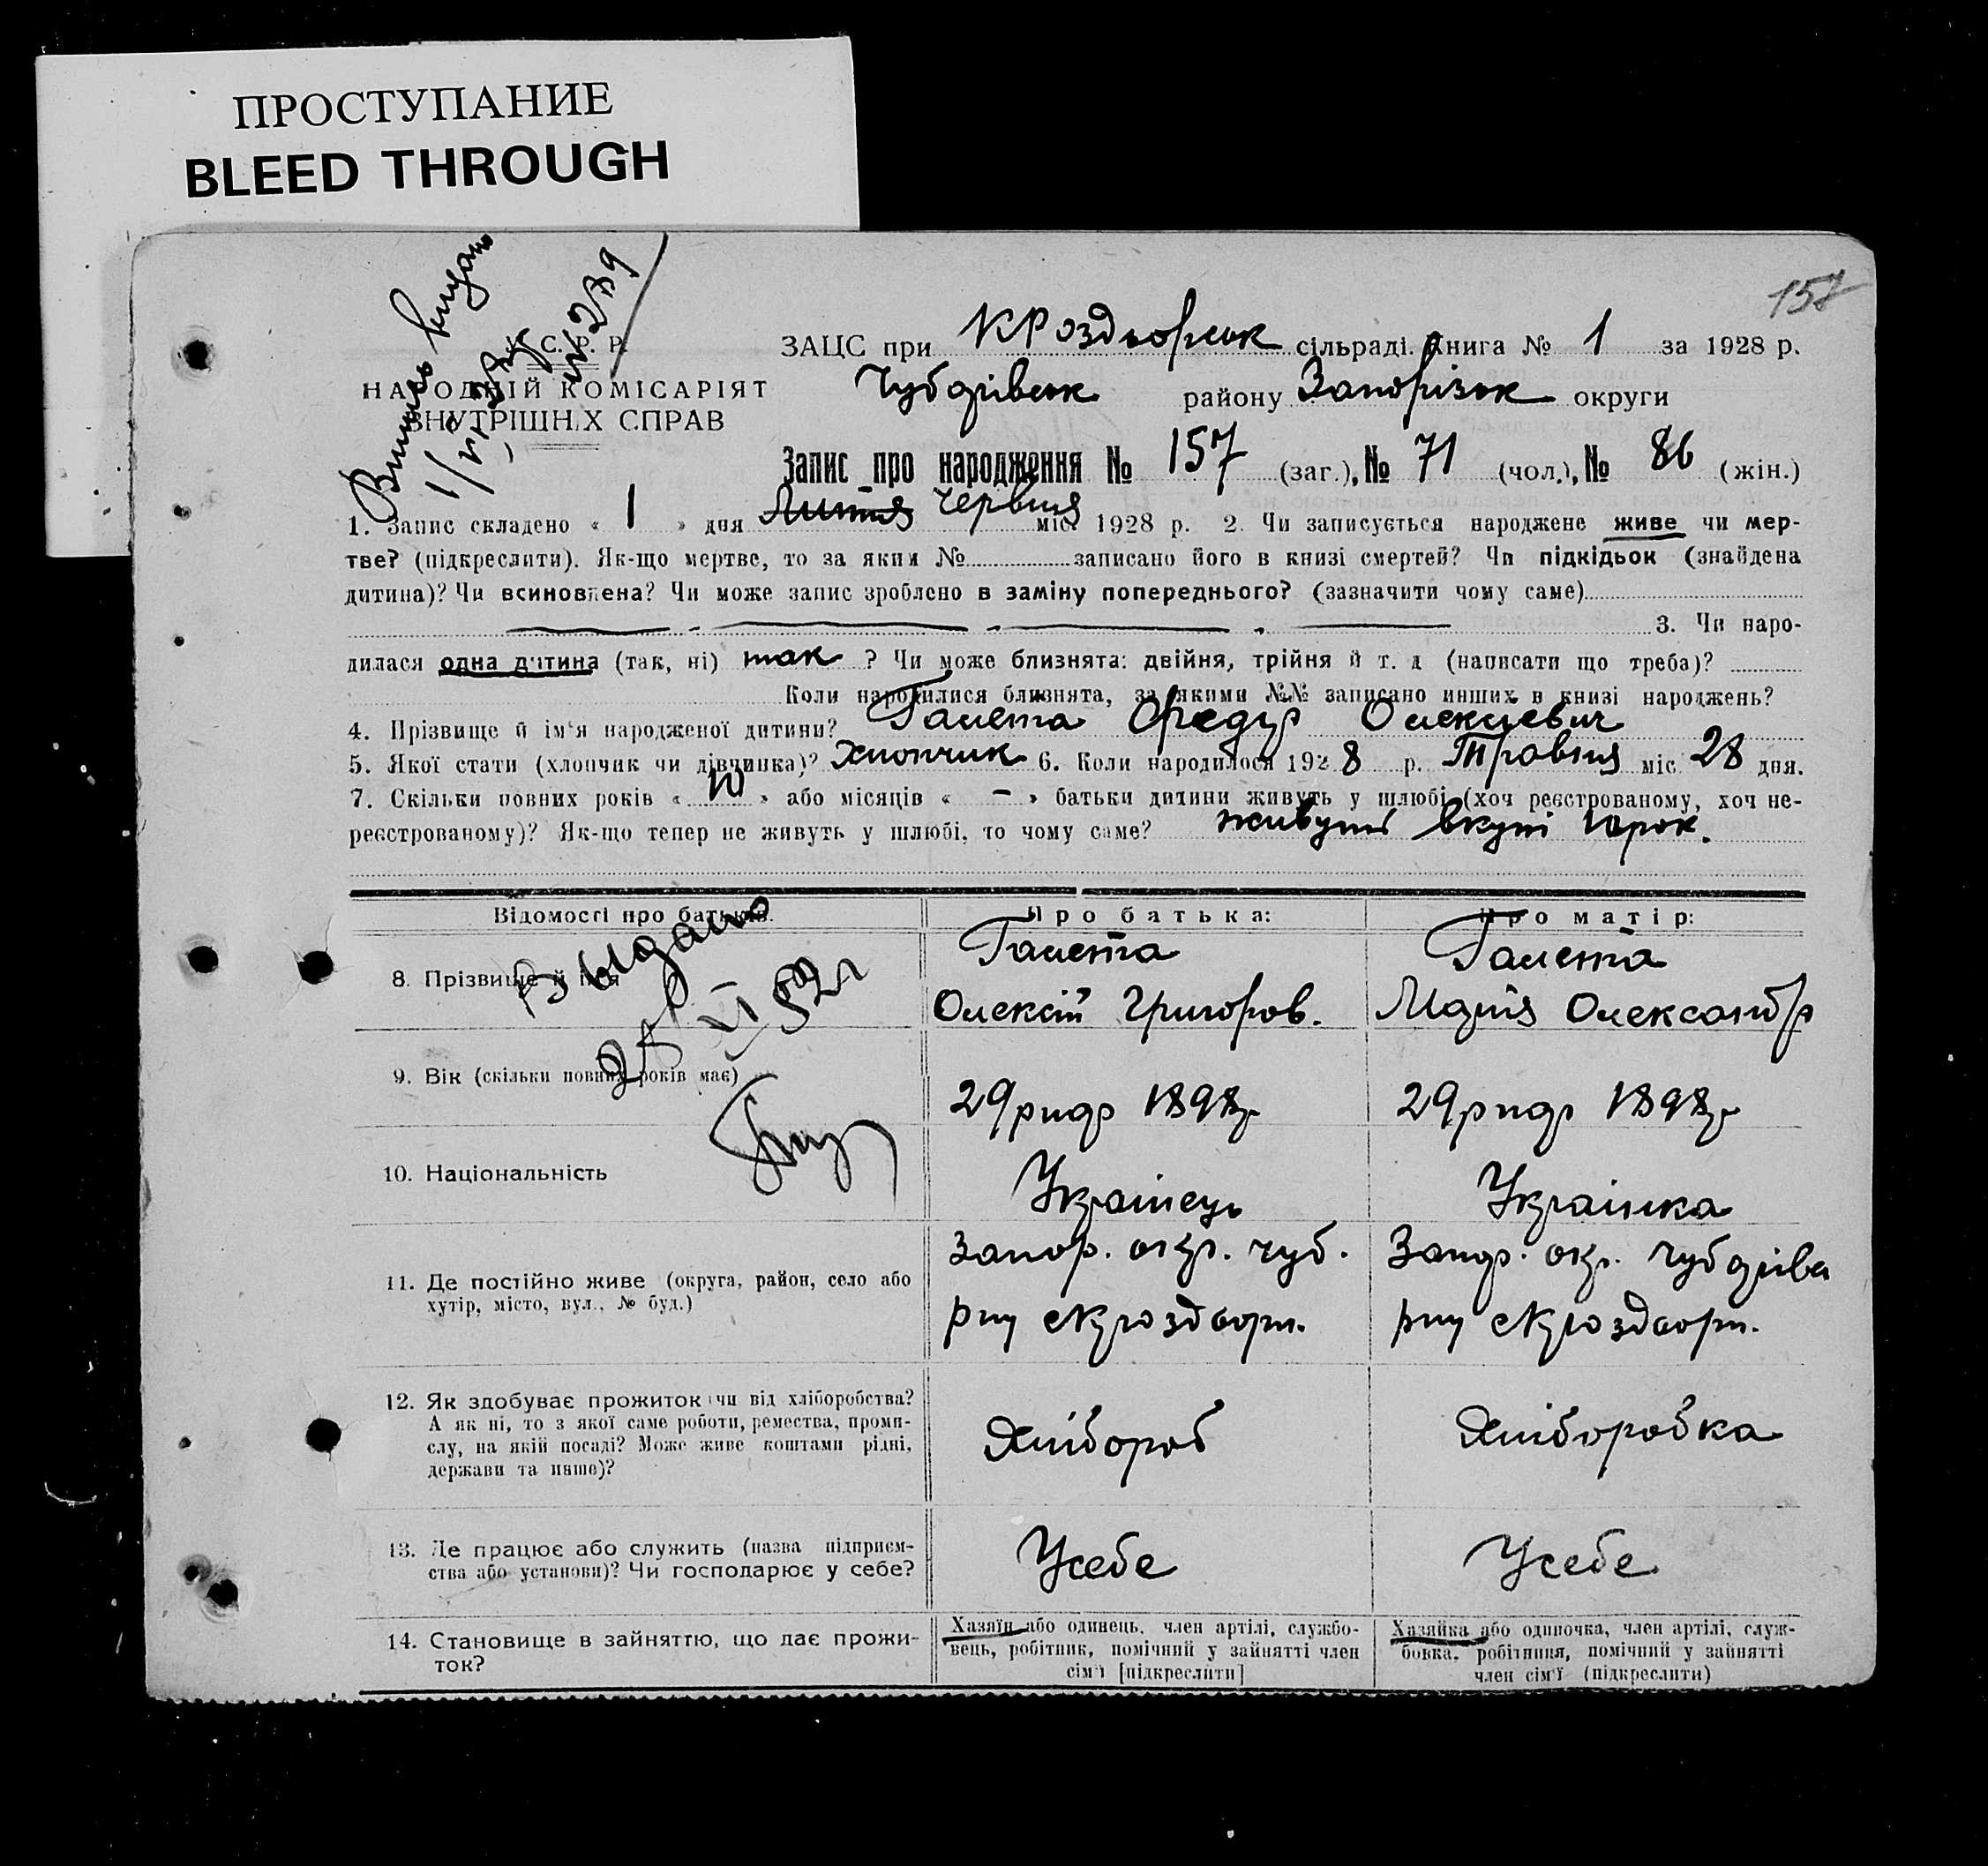 ПРОСТУПАНИЕ
BLEED THROUGH
157
Випись видано
У. С. Р. Р.
НАРОДНІЙ КОМІСАРІЯТ
ВНУТРІШНІХ СПРАВ
ЗАЦС при сільраді. Книга № 1 за 1928 р.
району Запорізьк округи
Запис про народження № 157 (заг.), № 71 (чол.), № 86 (жін.)
1. Запис складено « 1 » дня Липня Червня міс. 1928 р. 2. Чи записується народжене живе чи мер-
тве? (підкреслити). Як-що мертве, то за яким № записано його в книзі смертей? Чи підкідьок (знайдена
дитина)? Чи всиновлена? Чи може запис зроблено в заміну попереднього? (зазначити чому саме)
3. Чи наро-
дилася одна дитина (так, ні) так ? Чи може близнята: двійня, трійня й т. д (написати що треба)?
Коли народилися близнята, за якими №№ записано инших в книзі народжень?
4. Прізвище й ім'я народженої дитини? Галета Федір Олексієвич
5. Якої стати (хлопчик чи дівчинка)? Хлопчик 6. Коли народилося 1928 р. Травня міс. 28 дня.
7. Скільки повних років « 10 » або місяців « – » батьки дитини живуть у шлюбі (хоч реєстрованому, хоч не-
реєстрованому)? Як-що тепер не живуть у шлюбі, то чому саме? живуть вкупі 10 рок.
Відомості про батьків. Про батька: Про матір:
8. Прізвище й ім'я
Галета Галета
Олексій Григоров. Марія Олександр
Выдано
9. Вік (скільки повних років має)
29 ридр 1898 р 29 ридр 1898 р
10. Національність
Українець Українка
11. Де постійно живе (округа, район, село або
хутір, місто, вул., № буд.)
Запор. окр. чуб. Запор. окр.
12. Як здобуває прожиток: чи від хліборобства?
А як ні, то з якої саме роботи, ремества, проми-
слу, на якій посаді? Може живе коштами рідні,
держави та инше)?
Хлібороб Хліборобка
13. Де працює або служить (назва підприєм-
ства або установи)? Чи господарює у себе?
У себе У себе
14. Становище в зайняттю, що дає прожи-
ток?
Хазяїн або одинець, член артілі, службо-
вець, робітник, помічний у зайнятті член
сім'ї [підкреслити]
Хазяйка або одиночка, член артілі, служ-
бовка, робітниця, помічний у зайнятті
член сім'ї (підкреслити)